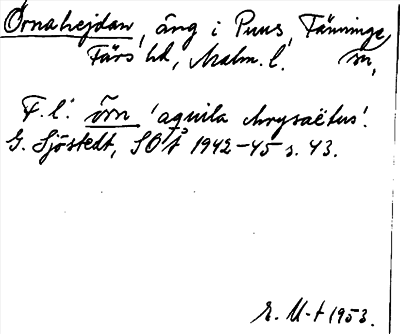 Örnahejdan, äng i Puus, Fränninge
Färs hd, Malm. l. sn,
F. l.: örn 'aquila chrysaëtus'.
G. Sjöstedt, SOÅ 1942-45 s. 43.
E. M-t 1953.